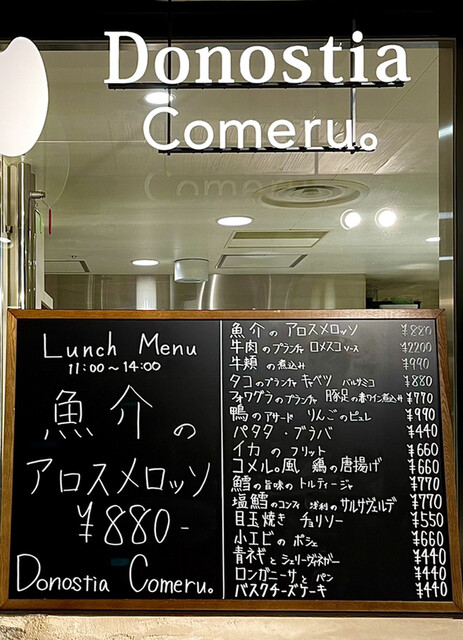 Donostia
Comeru。
Lunch Menu
11:00〜14:00
魚介の
アロスメロッソ
¥880-
Donostia Comeru。
魚介のアロスメロッソ ¥880
牛肉のプランチャ ロメスコソース ¥2200
牛頬の煮込み ¥990
タコのプランチャ キャベツ バルサミコ ¥880
フォワグラのプランチャ 豚足の赤ワイン煮込み ¥770
鴨のアサード りんごのピュレ ¥990
パタタ・ブラバ ¥440
イカのフリット ¥660
コメル。風 鶏の唐揚げ ¥660
鱈の旨味のトルティージャ ¥770
塩鱈のコンフィ 浅利のサルサヴェルデ ¥770
目玉焼き チョリソー ¥550
小エビのポシェ ¥660
青ネギとシェリーヴィネガー ¥440
ロンガニーサとパン ¥440
バスクチーズケーキ ¥440